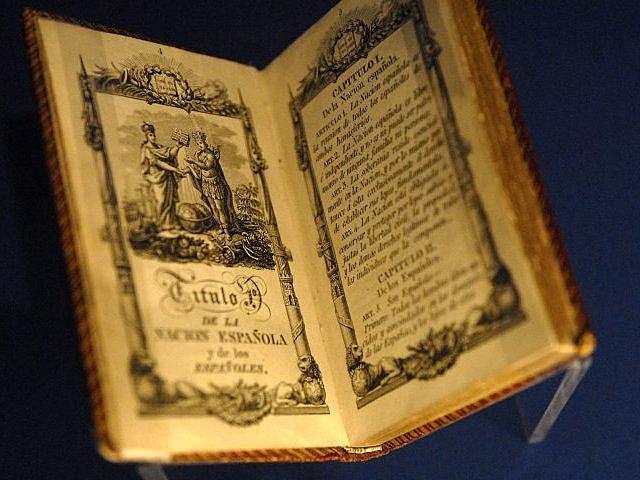 4
Titulo 1º
DE LA
NACION ESPAÑOLA
y de los
ESPAÑOLES.
CAPITULO I.
De la Nacion española.
ART. 1. La Nacion española es
la reunion de todos los españoles de
ambos hemisferios.
ART. 2. La Nacion española es libre
é independiente, y no es ni puede ser patri-
monio de ninguna familia ni persona.
ART. 3. La soberanía reside esencial-
mente en la Nacion, y por lo mismo
el derecho
de establecer sus leyes fundamentales.
ART. 4. La Nacion está obligada á
conservar y proteger por leyes sabias y
justas la libertad civil, la propiedad
y los demas derechos legítimos de todos
los individuos que la componen.
CAPITULO II.
De los Españoles.
ART. 5. Son Españoles
Primero: Todos los
de las Españas, y los hijos de estos